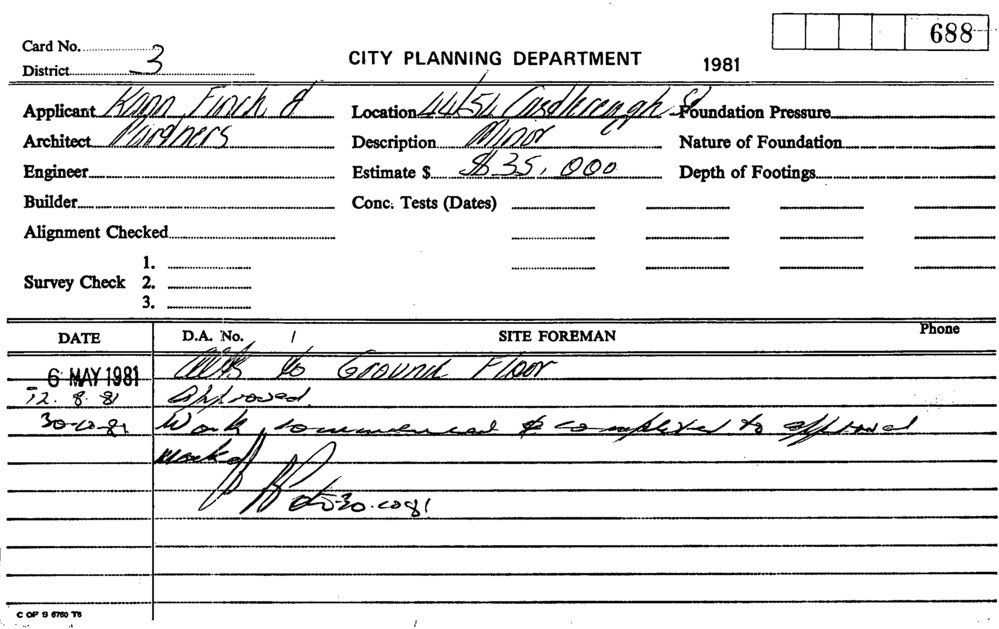 688
Card No.
District 3
CITY PLANNING DEPARTMENT 1981
Applicant Kann Finch &
Location 44/54 Castlereagh St
Foundation Pressure
Architect Partners
Description Minor
Nature of Foundation
Engineer
Estimate $ $35,000
Depth of Footings
Builder
Conc. Tests (Dates)
Alignment Checked
1.
Survey Check 2.
3.
DATE D.A. No. SITE FOREMAN Phone
6 MAY 1981 Alts to Ground Floor
12.8.81 Approved.
30-10-81 Work commenced & completed to approval
Mark off
C OF S 6760 T6